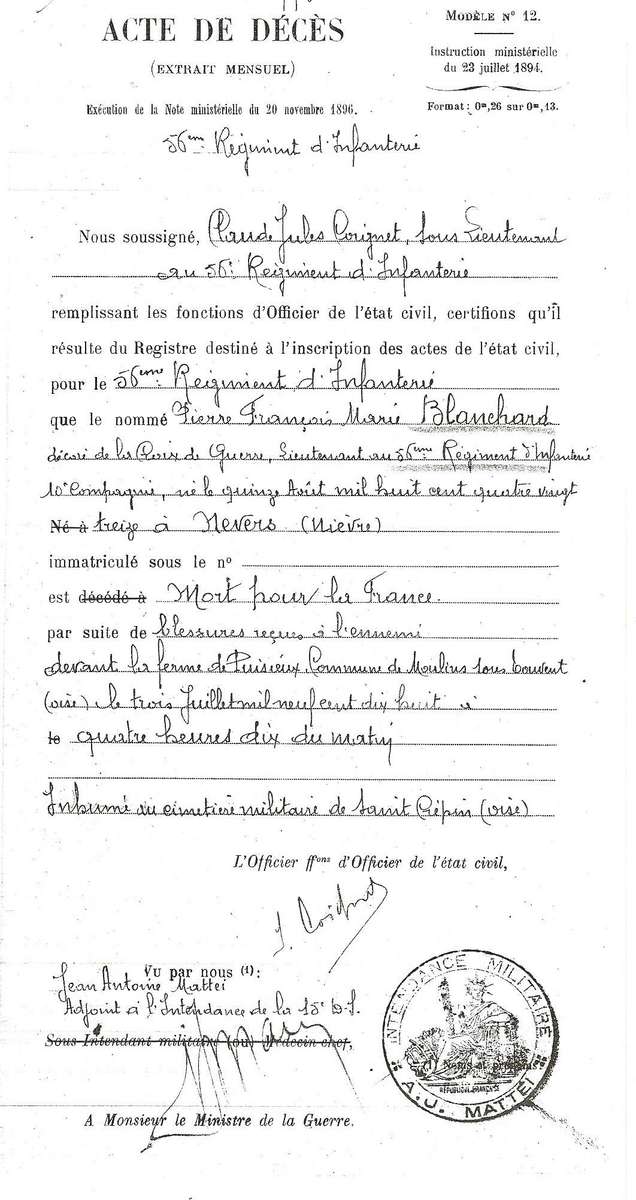 ACTE DE DÉCÈS
(EXTRAIT MENSUEL)
Exécution de la Note ministérielle du 20 novembre 1896.
MODÈLE N° 12.
Instruction ministérielle
du 23 juillet 1894.
Format : 0m,26 sur 0m,13.
56ème Régiment d'Infanterie
Nous soussigné, Claude Jules Coignet, Sous Lieutenant
au 56e Regiment d'Infanterie
remplissant les fonctions d'Officier de l'état civil, certifions qu'il
résulte du Registre destiné à l'inscription des actes de l'état civil,
pour le 56ème Régiment d'Infanterie
que le nommé Pierre François Marie Blanchard
décoré de la Croix de Guerre, Lieutenant au 56ème Régiment d'Infanterie
10e Compagnie, né le quinze Août mil huit cent quatre vingt
Né à treize à Nevers (Nièvre)
immatriculé sous le n°
est décédé à Mort pour la France.
par suite de blessures reçues à l'ennemi
devant la ferme de Puisieux, Commune de Moulins sous Touvent
(oise) le trois Juillet mil neuf cent dix huit à
le quatre heures dix du matin
Inhumé au cimetière militaire de Saint Crépin (oise)
L'Officier ffons d'Officier de l'état civil,
J. Coignet
Vu par nous (1) :
Jean Antoine Mattei
Adjoint à l'Intendance de la 15e D.I.
Sous-Intendant militaire (ou) Médecin chef,
(1) Noms et prénoms
INTENDANCE MILITAIRE
RÉPUBLIQUE FRANÇAISE
A.J. MATTEI
A Monsieur le Ministre de la Guerre.